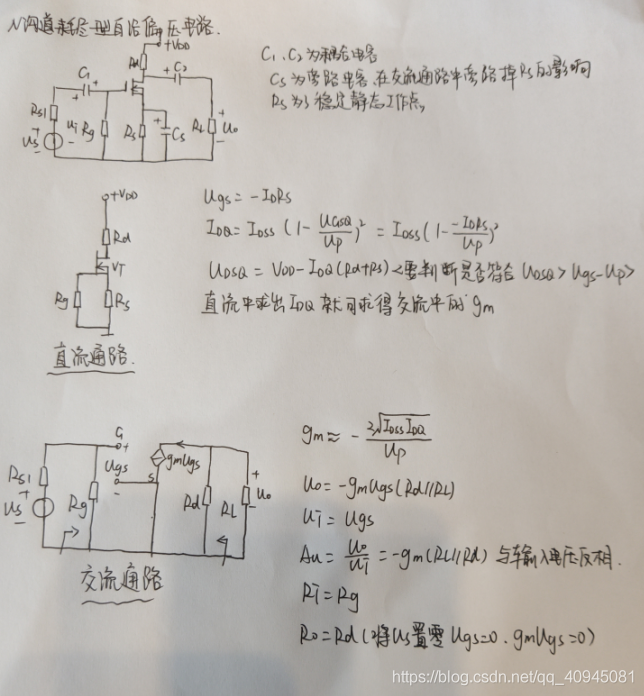 N沟道耗尽型自给偏压电路.
+VDD
Rd
C1
C2
Rs1
Us
+
-
ui
Rg
Rs
Cs
RL
Uo
C1、C2为耦合电容
Cs为旁路电容,在交流通路中旁路掉Rs的影响
Rs为了稳定静态工作点,
+VDD
Rd
VT
Rg
Rs
直流通路.
Ugs = -IDRs
IDQ = IDSS (1- UGSQ/Up)² = IDSS(1- -IDRs/Up)²
UDSQ = VDD-IDQ(Rd+Rs) <要判断是否符合 UDSQ > Ugs-Up>
直流中求出IDQ就可求得交流中的gm
Rs1
Us
+
-
Rg
G
+
Ugs
-
S
gmUgs
Rd
RL
+
Uo
-
交流通路
gm ≈ - 2√IDSS IDQ/Up
Uo = -gmUgs(Rd//RL)
Ui = Ugs
Au = Uo/Ui = -gm(RL//Rd) 与输入电压反相.
Ri = Rg
Ro = Rd (将Us置零 Ugs=0. gmUgs=0)
https://blog.csdn.net/qq_40945081